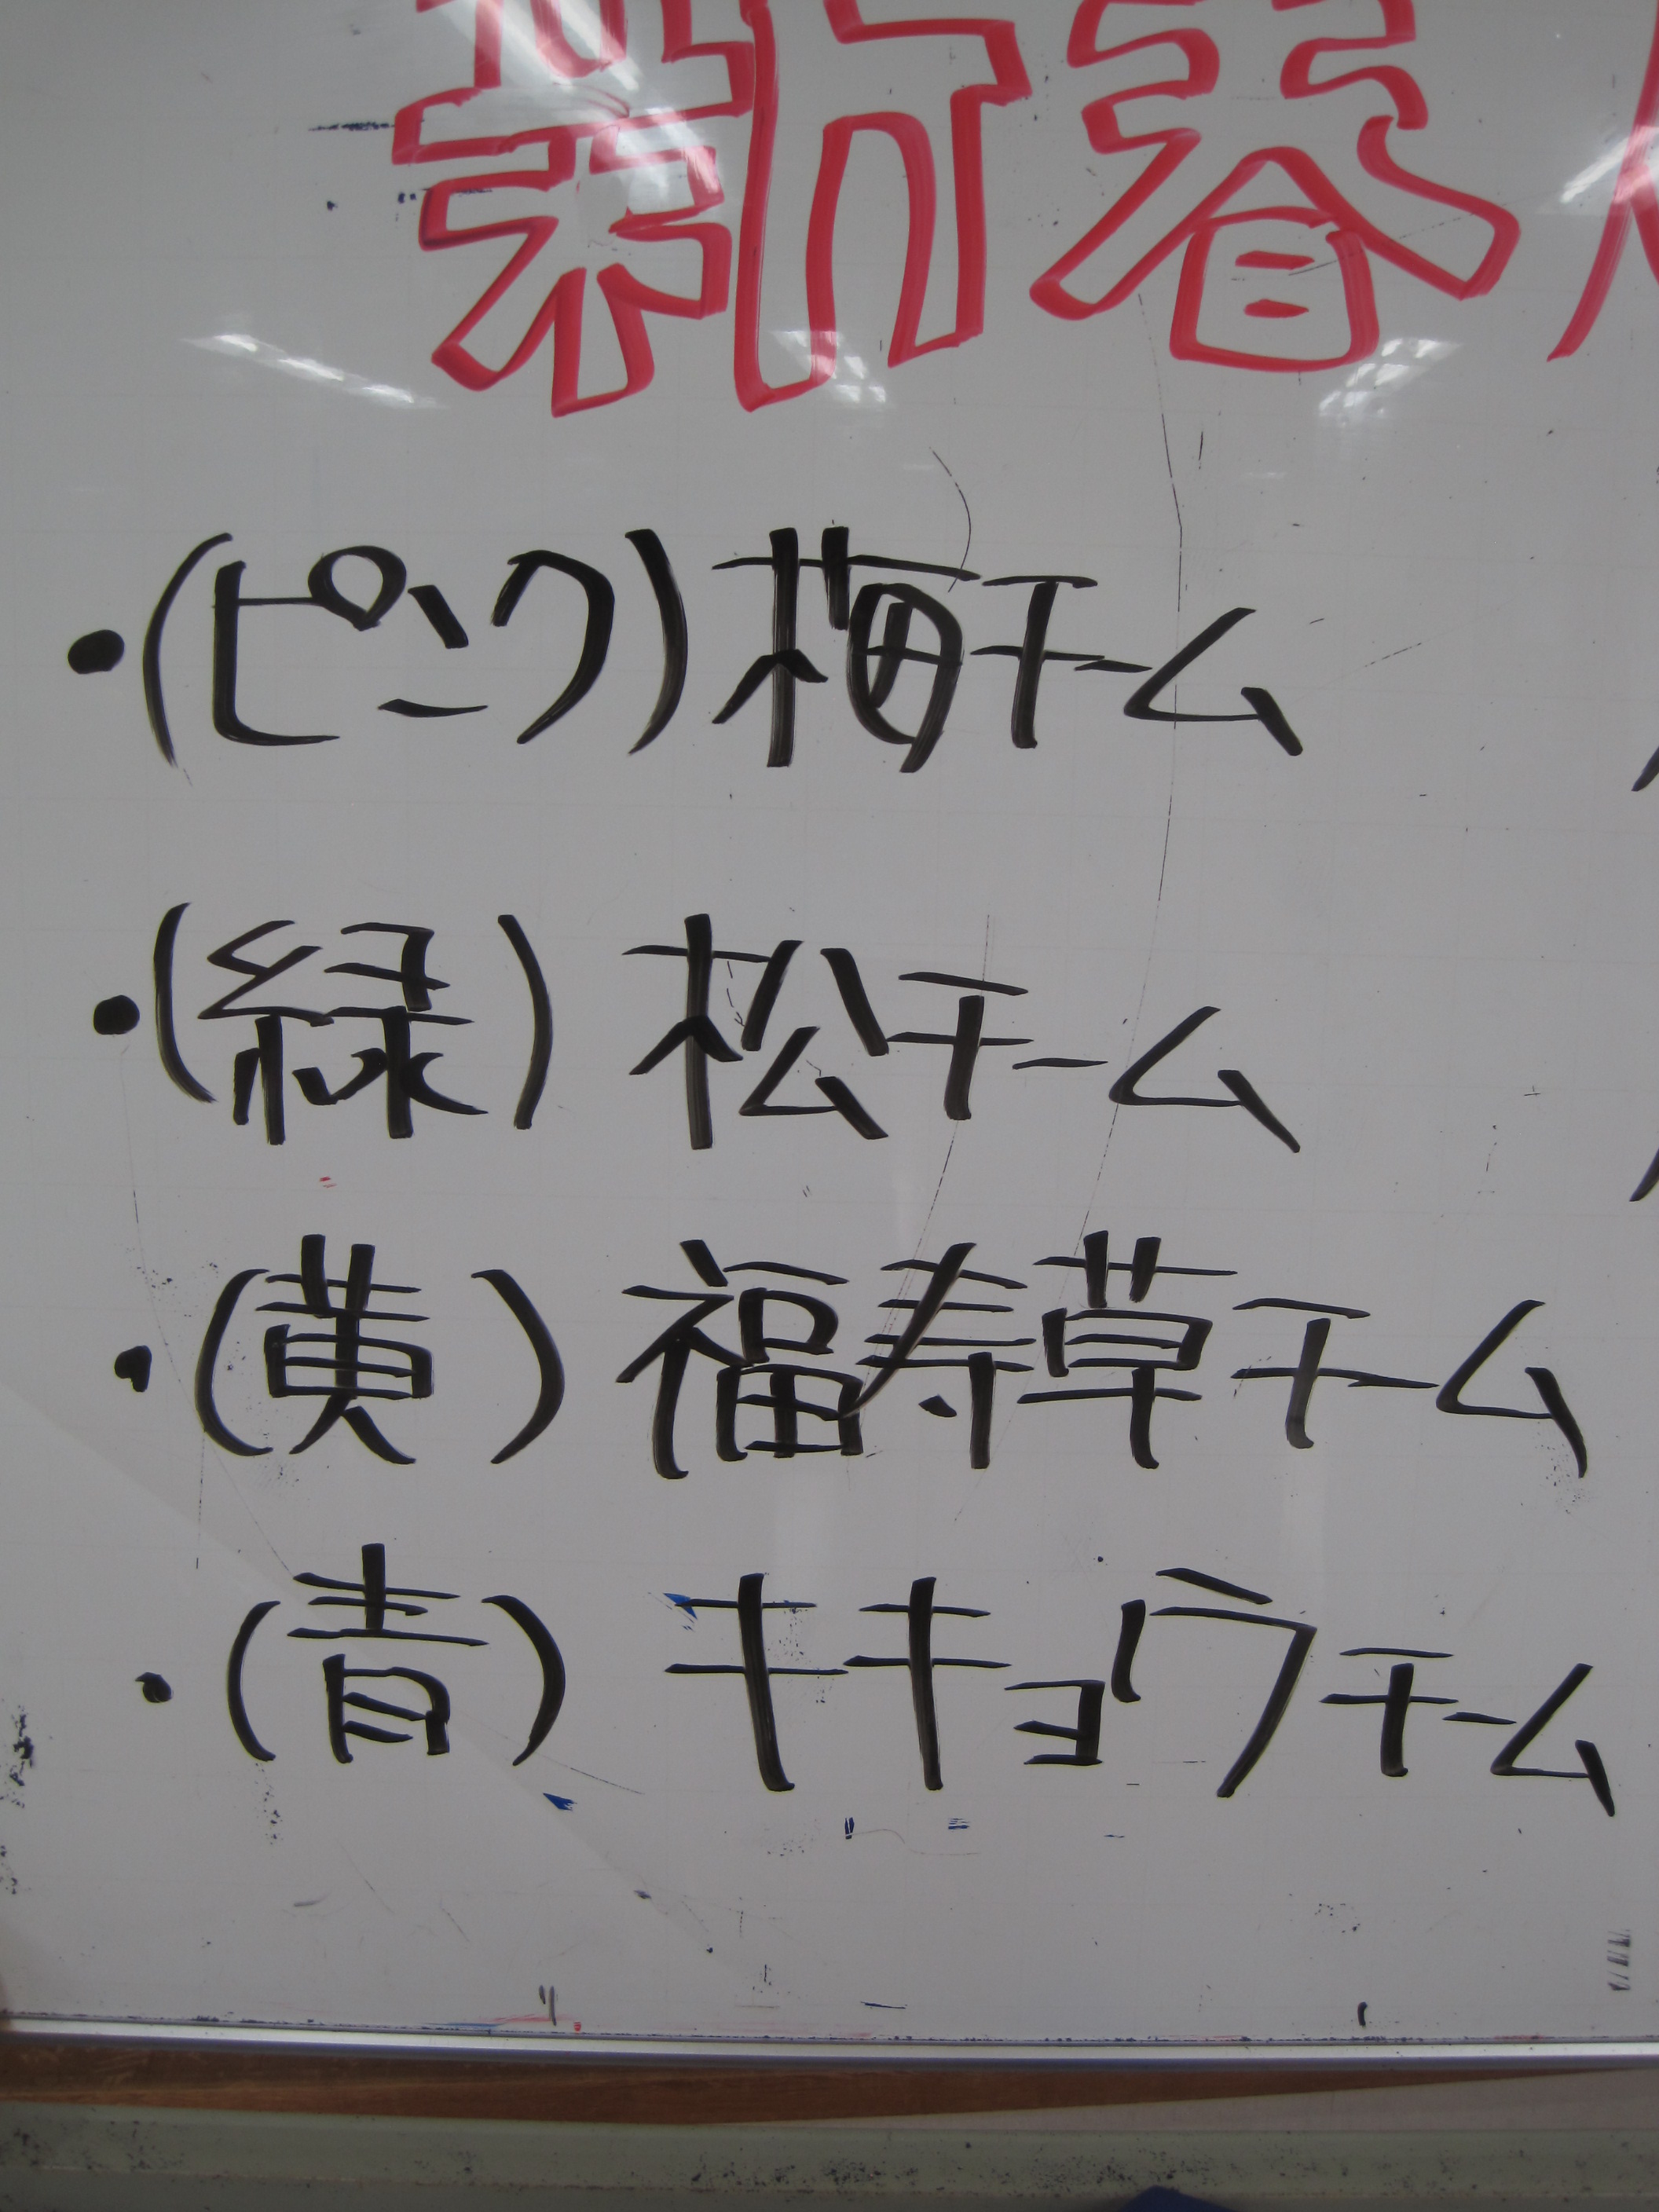 新春
・(ピンク)梅チーム
・(緑)松チーム
・(黄)福寿草チーム
・(青)キキョウチーム